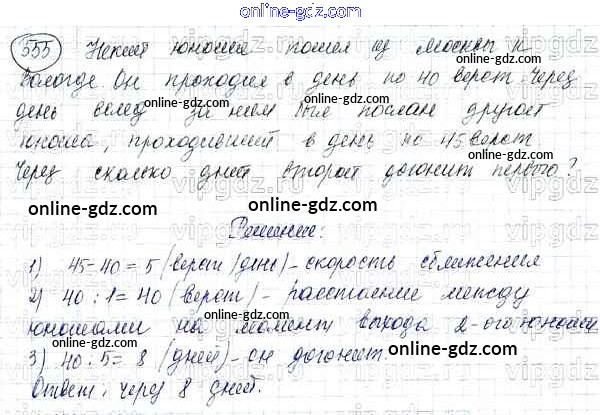 online-gdz.com
555 Некий юноша пошел из Москвы к
Вологде. Он проходил в день по 40 верст. Через
online-gdz.com
день вслед за ним был послан другой
online-gdz.com online-gdz.com
юноша, проходивший в день по 45 верст
online-gdz.com
Через сколько дней второй догонит первого?
online-gdz.com online-gdz.com online-gdz.com
Решение:
1) 45-40=5 (верст/день)-скорость сближения
online-gdz.com online-gdz.com
2) 40:1=40 (верст)-расстояние между
юношами на момент выхода 2-ого юноши
online-gdz.com online-gdz.com online-gdz.com
3) 40:5=8 (дней)-он догонит.
Ответ: через 8 дней.
online-gdz.com